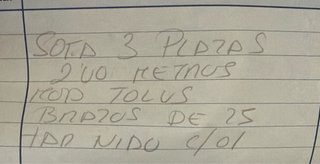 SOFA 3 PLAZAS
2'40 METROS
MOD TOLUS
BRAZOS DE 25
TAP NIDO C/01